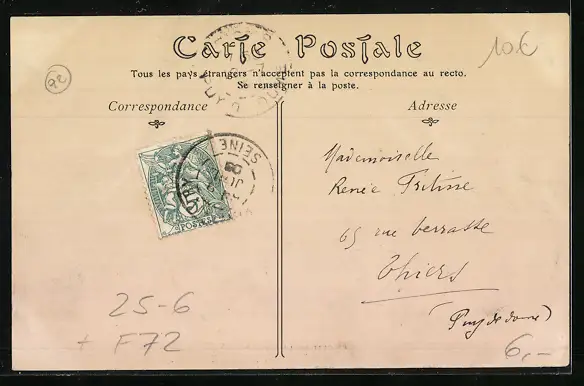 10.€
92
Carte Postale
Tous les pays étrangers n'acceptent pas la correspondance au recto.
Se renseigner à la poste.
Correspondance
Adresse
SEINE
Mademoiselle
Renée
65 rue Terrasse
Thiers
(Puy de dome)
25-6
+ F72
6,-